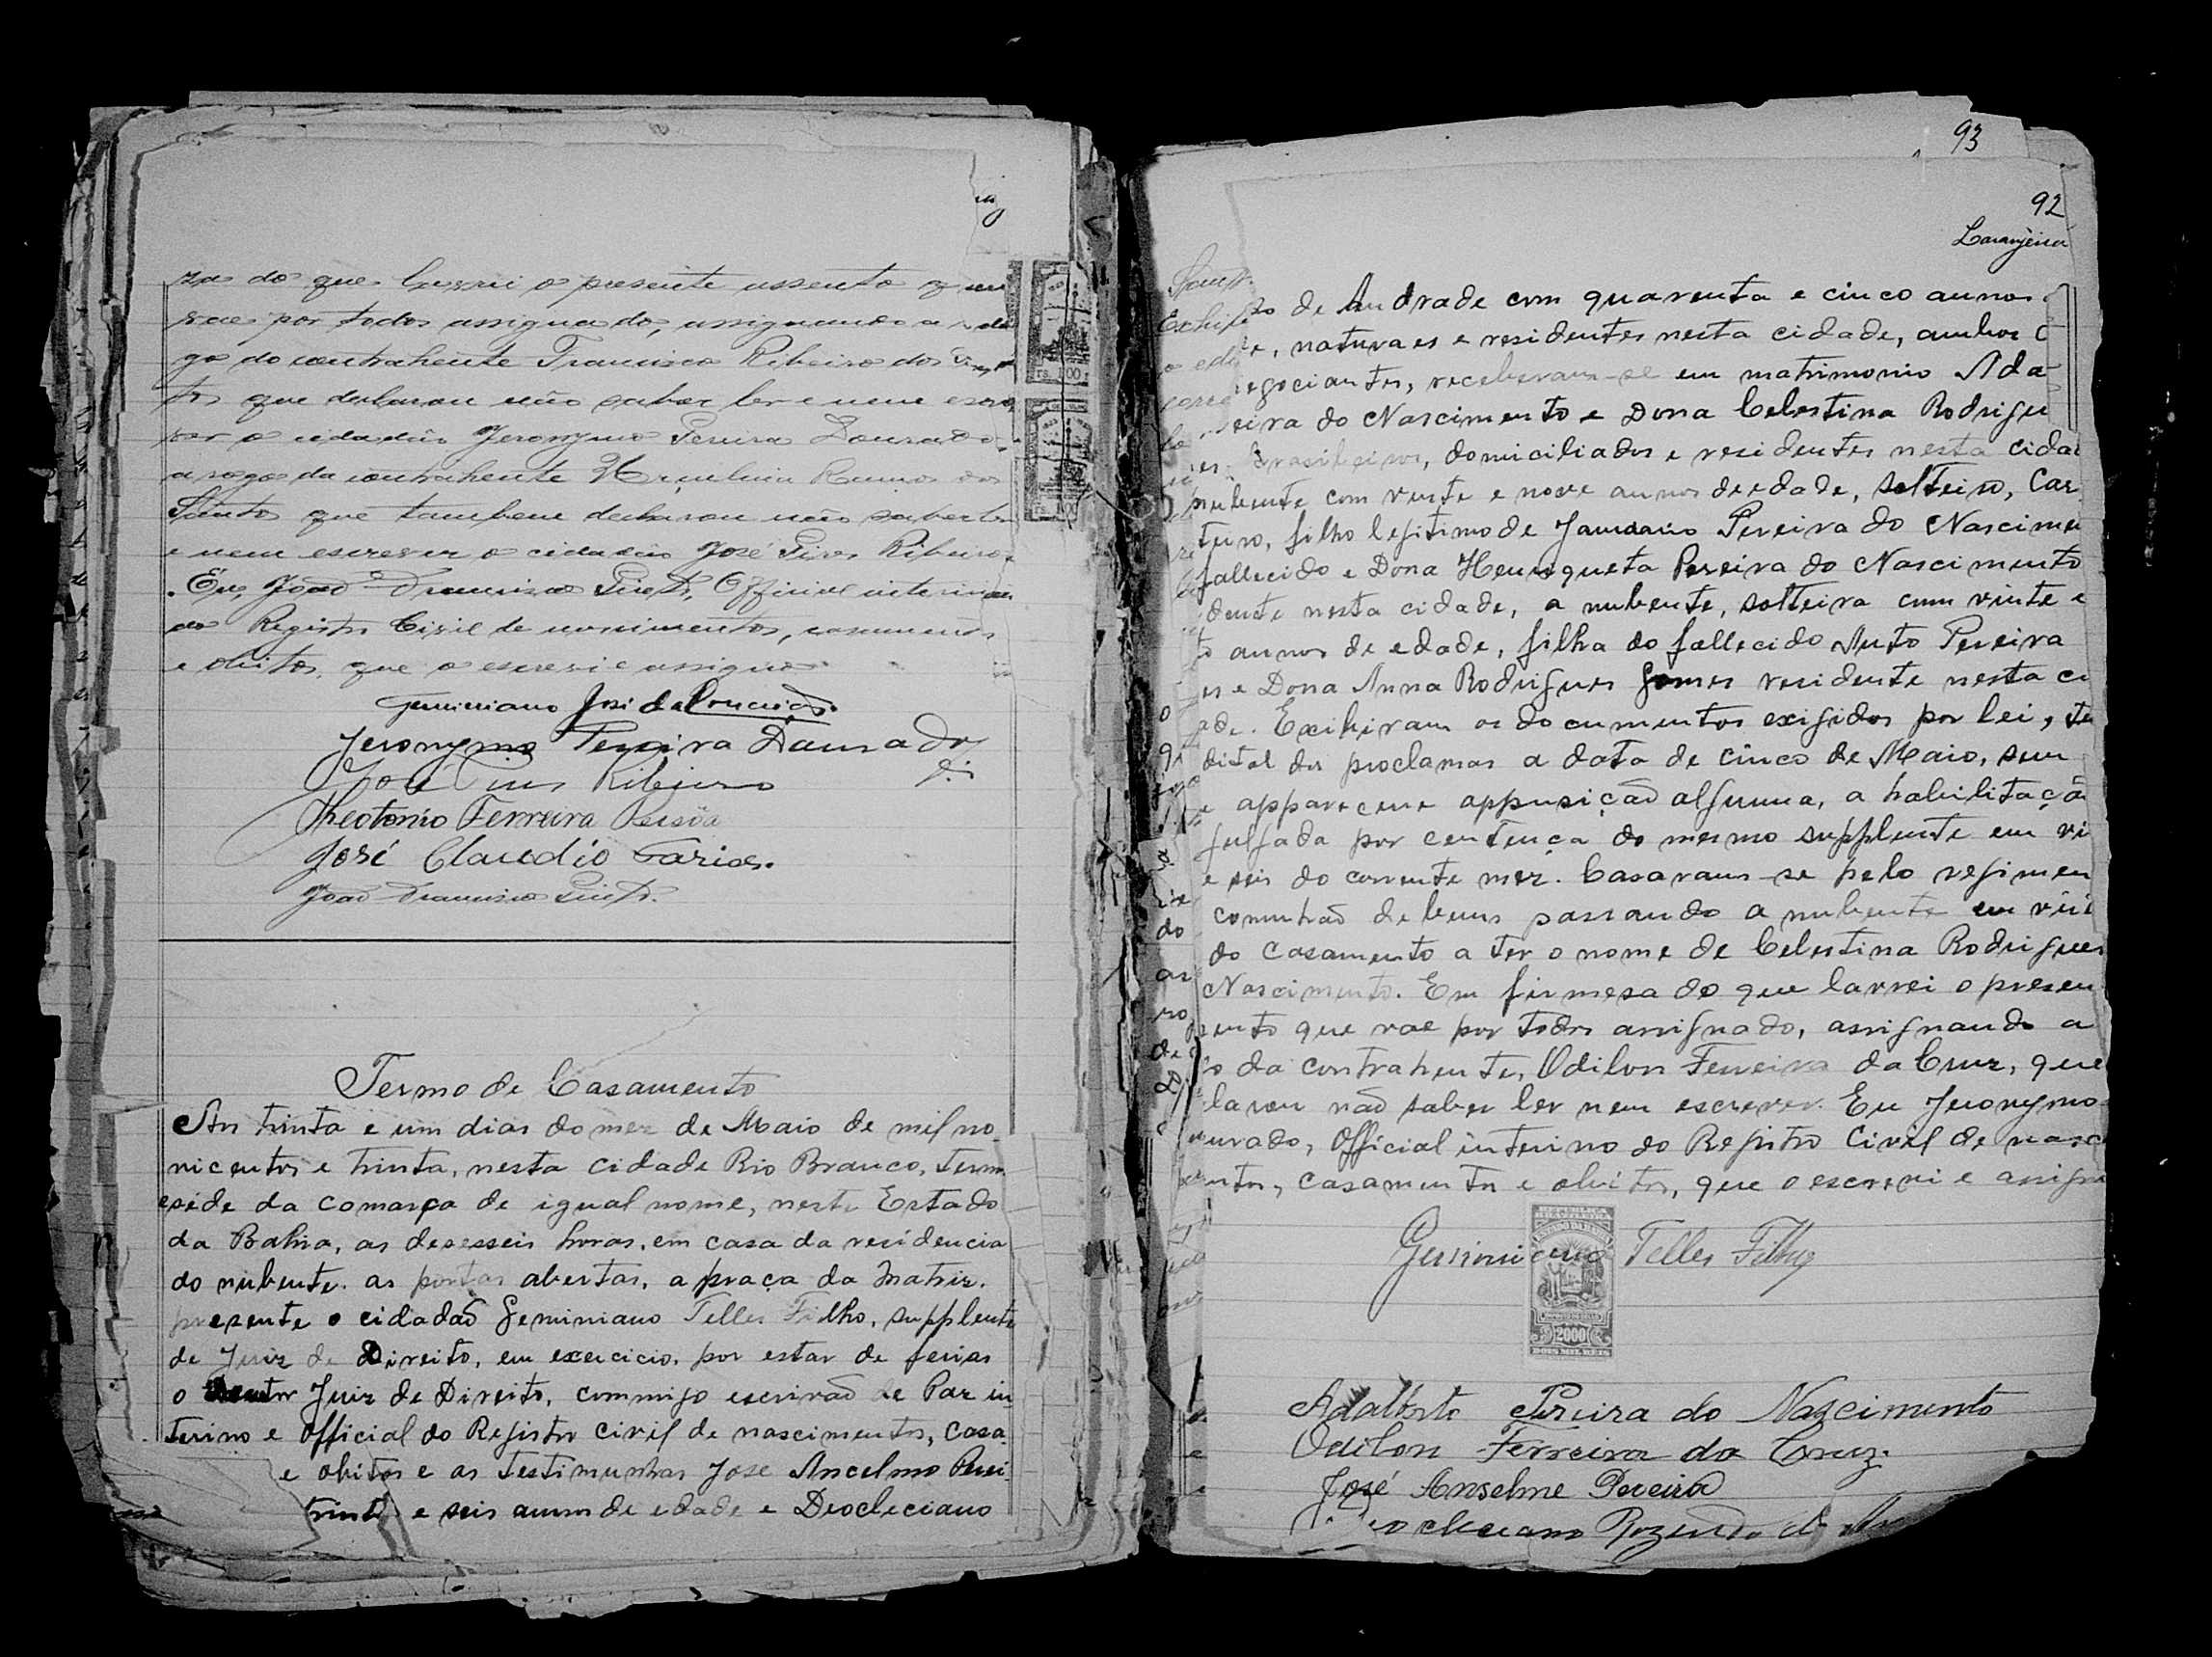 za do que lavrei o presente assento q
vae por todos assignado, assignando a ro
go do contrahente Francisco Ribeiro dos
tos que declarou não saber ler e nem escre
ver o cidadão Jeronymo Pereira Dourado
a rogo da contrahente Ramos dos
Santos que tambem declarou não saber ler
e nem escrever o cidadão José Pires Ribeiro
. Eu, João Francisco Pinto, Official interino
do Registro Civil de nascimentos, casamentos
e obitos, que o escrevi e assigno
Geminiano José da Conceição
Jeronymo Pereira Dourado
José Pires Ribeiro
Theotonio Ferreira Pessôa
José Claudio Farias.
João Francisco Pinto.
Termo de Casamento
Aos trinta e um dias do mez de Maio de mil no
vicentos e trinta, nesta cidade Rio Branco, termo
e séde da comarca de igual nome, neste Estado
da Bahia, as desesseis horas, em casa da residencia
do nubente. as portas abertas, a praça da Matriz.
presente o cidadão Geminiano Telles Filho, supplente
de Juiz de Direito, em exercicio, por estar de ferias
o Doutor Juiz de Direito, commigo escrivão de Paz in
terino e Official do Registro Civil de nascimentos, casa
e obitos e as testimunhas Jose Ancelmo Perei
trinta e seis annos de edade e Deocleciano
93
92
Laranjeira
de Andrade com quarenta e cinco annos
, naturaes e residentes nesta cidade, ambos
egociantes, receberam-se em matrimonio Ada
eira do Nascimento e Dona Celestina Rodrigu
es brasileiros, domiciliados e residentes nesta cida
nubente com vinte e nove annos de edade, solteiro, Car
teiro, filho legitimo de Januario Pereira do Nascimen
fallecido e Dona Henriqueta Pereira do Nascimento
dente nesta cidade, a nubente, solteira com vinte e
annos de edade, filha do fallecido Auto Pereira
es e Dona Anna Rodrigues Gomes residente nesta ci
ade. Exihiram os documentos exigidos por lei, te
dital dos proclamas a data de cinco de Maio, sem
e apparecene appusição alguma, a habilitaçã
julgada por centença do mesmo supplente em vi
e seis do corrente mez. Casaram-se pelo regimen
comunhão de bens passando a nubente em vir
do casamento a ter o nome de Celestina Rodrigues
Nascimento. Em firmesa do que lavrei o presen
ento que vae por todos assignado, assignando a
o da contrahente, Odilon Ferreira da Cruz, que
larou não saber ler nem escrever. Eu Jeronymo
ourado, Official interino do Registro Civil de nasc
entos, casamentos e obitos, que o escrevi e assigno
Geminiano Telles Filho
REPUBLICA
BRASILEIRA
2000
DOIS MIL RÉIS
Adalberto Pereira do Nascimento
Odilon Ferreira da Cruz.
José Anselmo Pereira
Deocleciano Rozendo de An